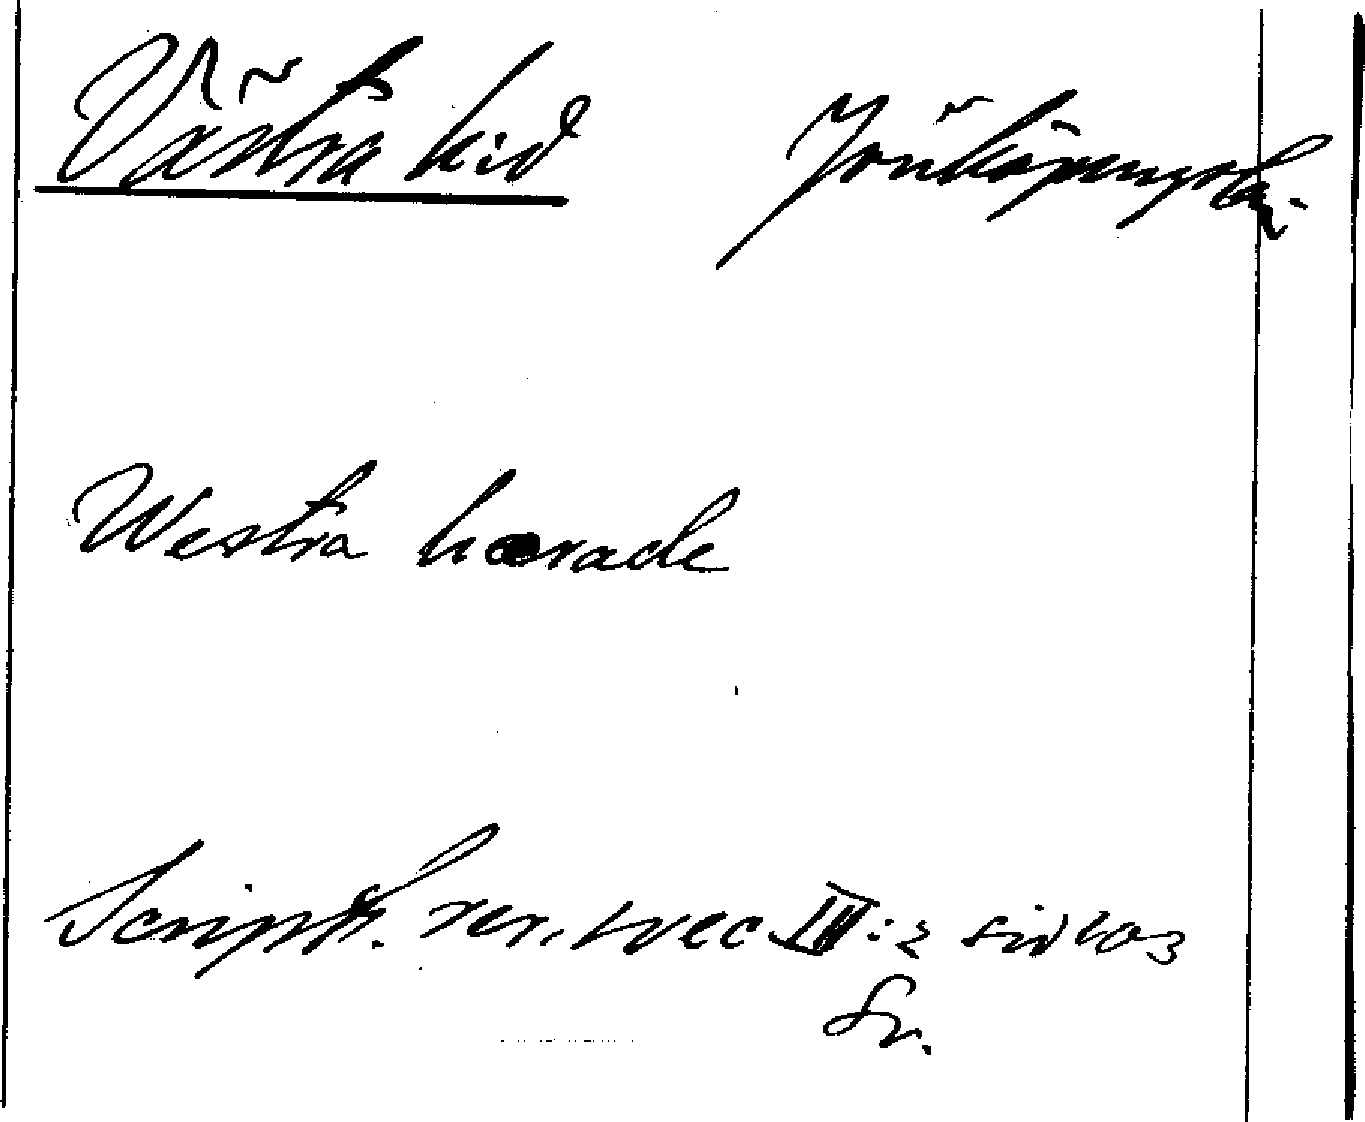 Västra hd Jönköpings län.
Westra hærade
Script. rer. svec III:2 sid 103
Sv.